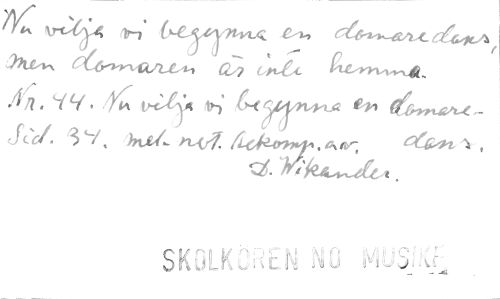 Nu vilja vi begynna en domaredans,
men domaren är inte hemma.
Nr. 44. Nu vilja vi begynna en domare-
Sid. 34. mel. not. Ackomp. av. dans.
D. Wikander.
SKOLKÖREN NO MUSIKF